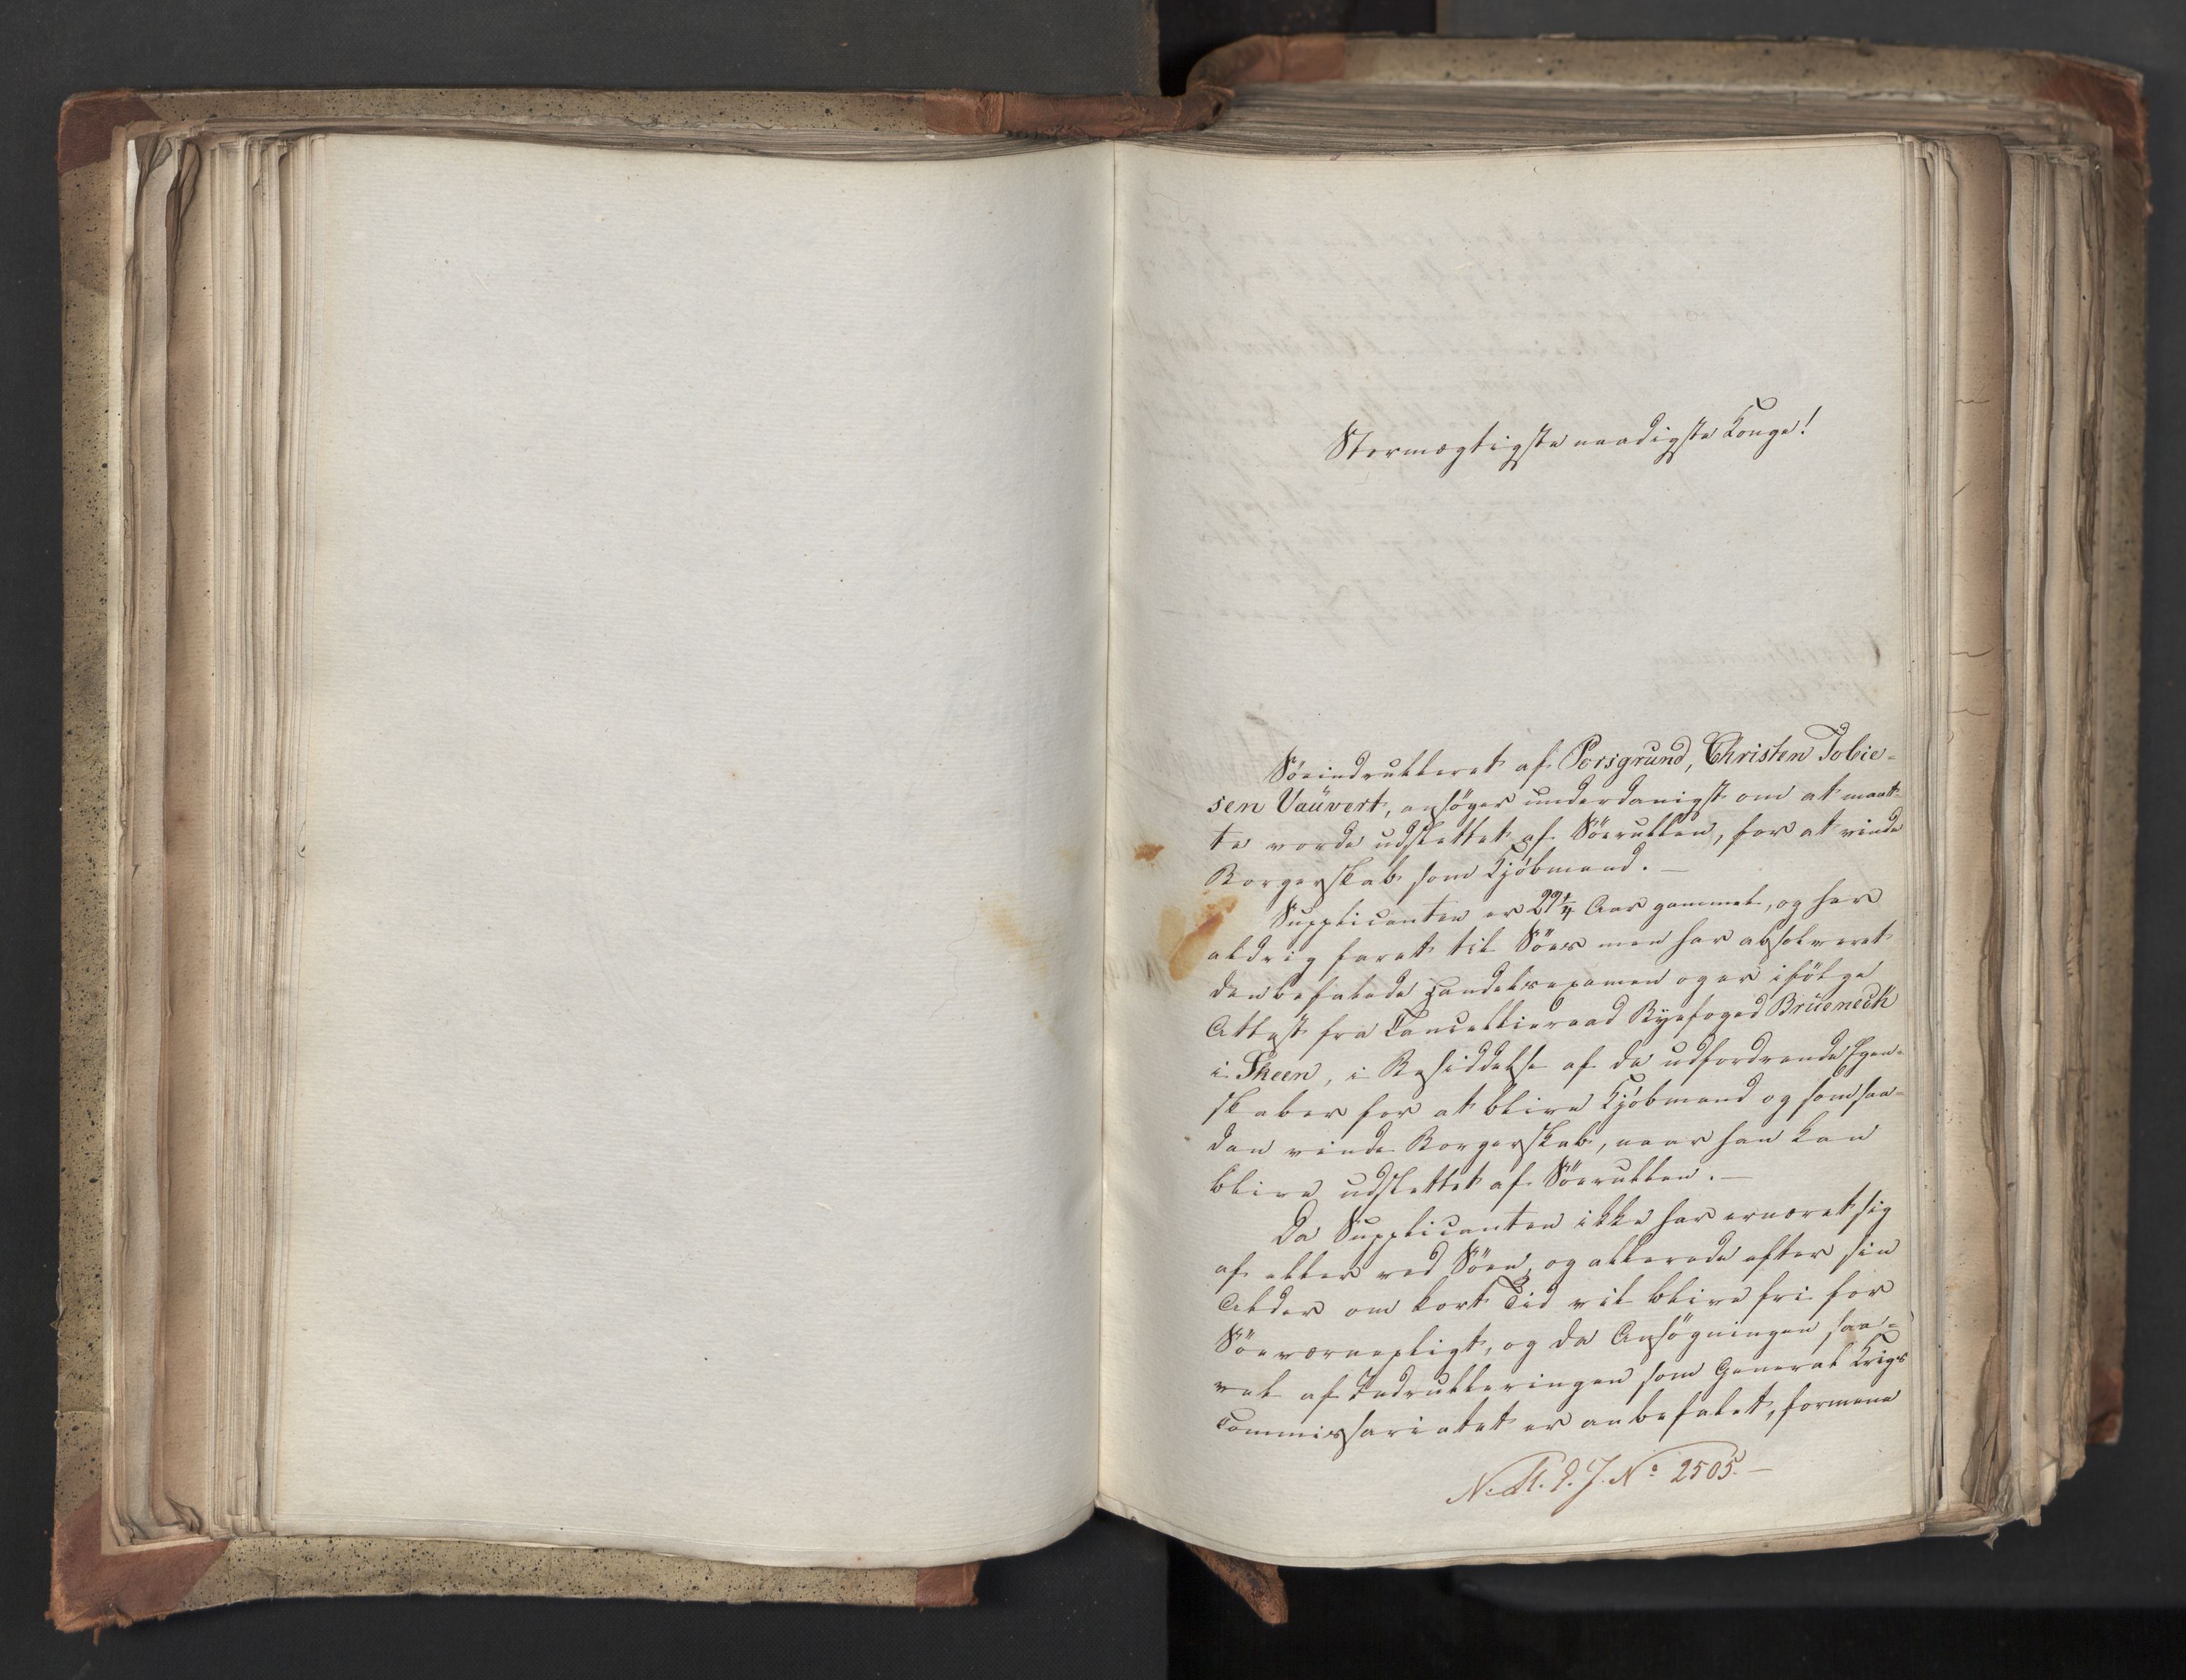 Stormægtigste naadigste Konge!
Söeindrulleret af Porsgrund, Christen Tobie-
sen Vauvert, ansöger underdanigst om at maat-
te vorde udslettet af Söerullen, for at vinde
Borgerskab som Kjöbmand. —
Supplicanten er 29 1/4 Aar gammel, og har
aldrig faret til Söes men har absolveret
den befalede Handelsexamen og er ifölge
Attest fra Cancellieraad Byefoged Brüeneck
i Skeen, i Besiddelse af de udfordrende Egen-
skaber for at blive Kjöbmand og som saa-
dan vinde Borgerskab, naar han kan
blive udslettet af Söerullen. —
Da Supplicanten ikke har ernæret sig
af eller ved Söen, og allerede efter sin
Alder om kort Tid vil blive fri for
Söeværnepligt, og da Ansögningen saa-
vel af Indrulleringen som General Krigs
Commissariatet er anbefalet, formene
N. M. D. J. No 2505. —